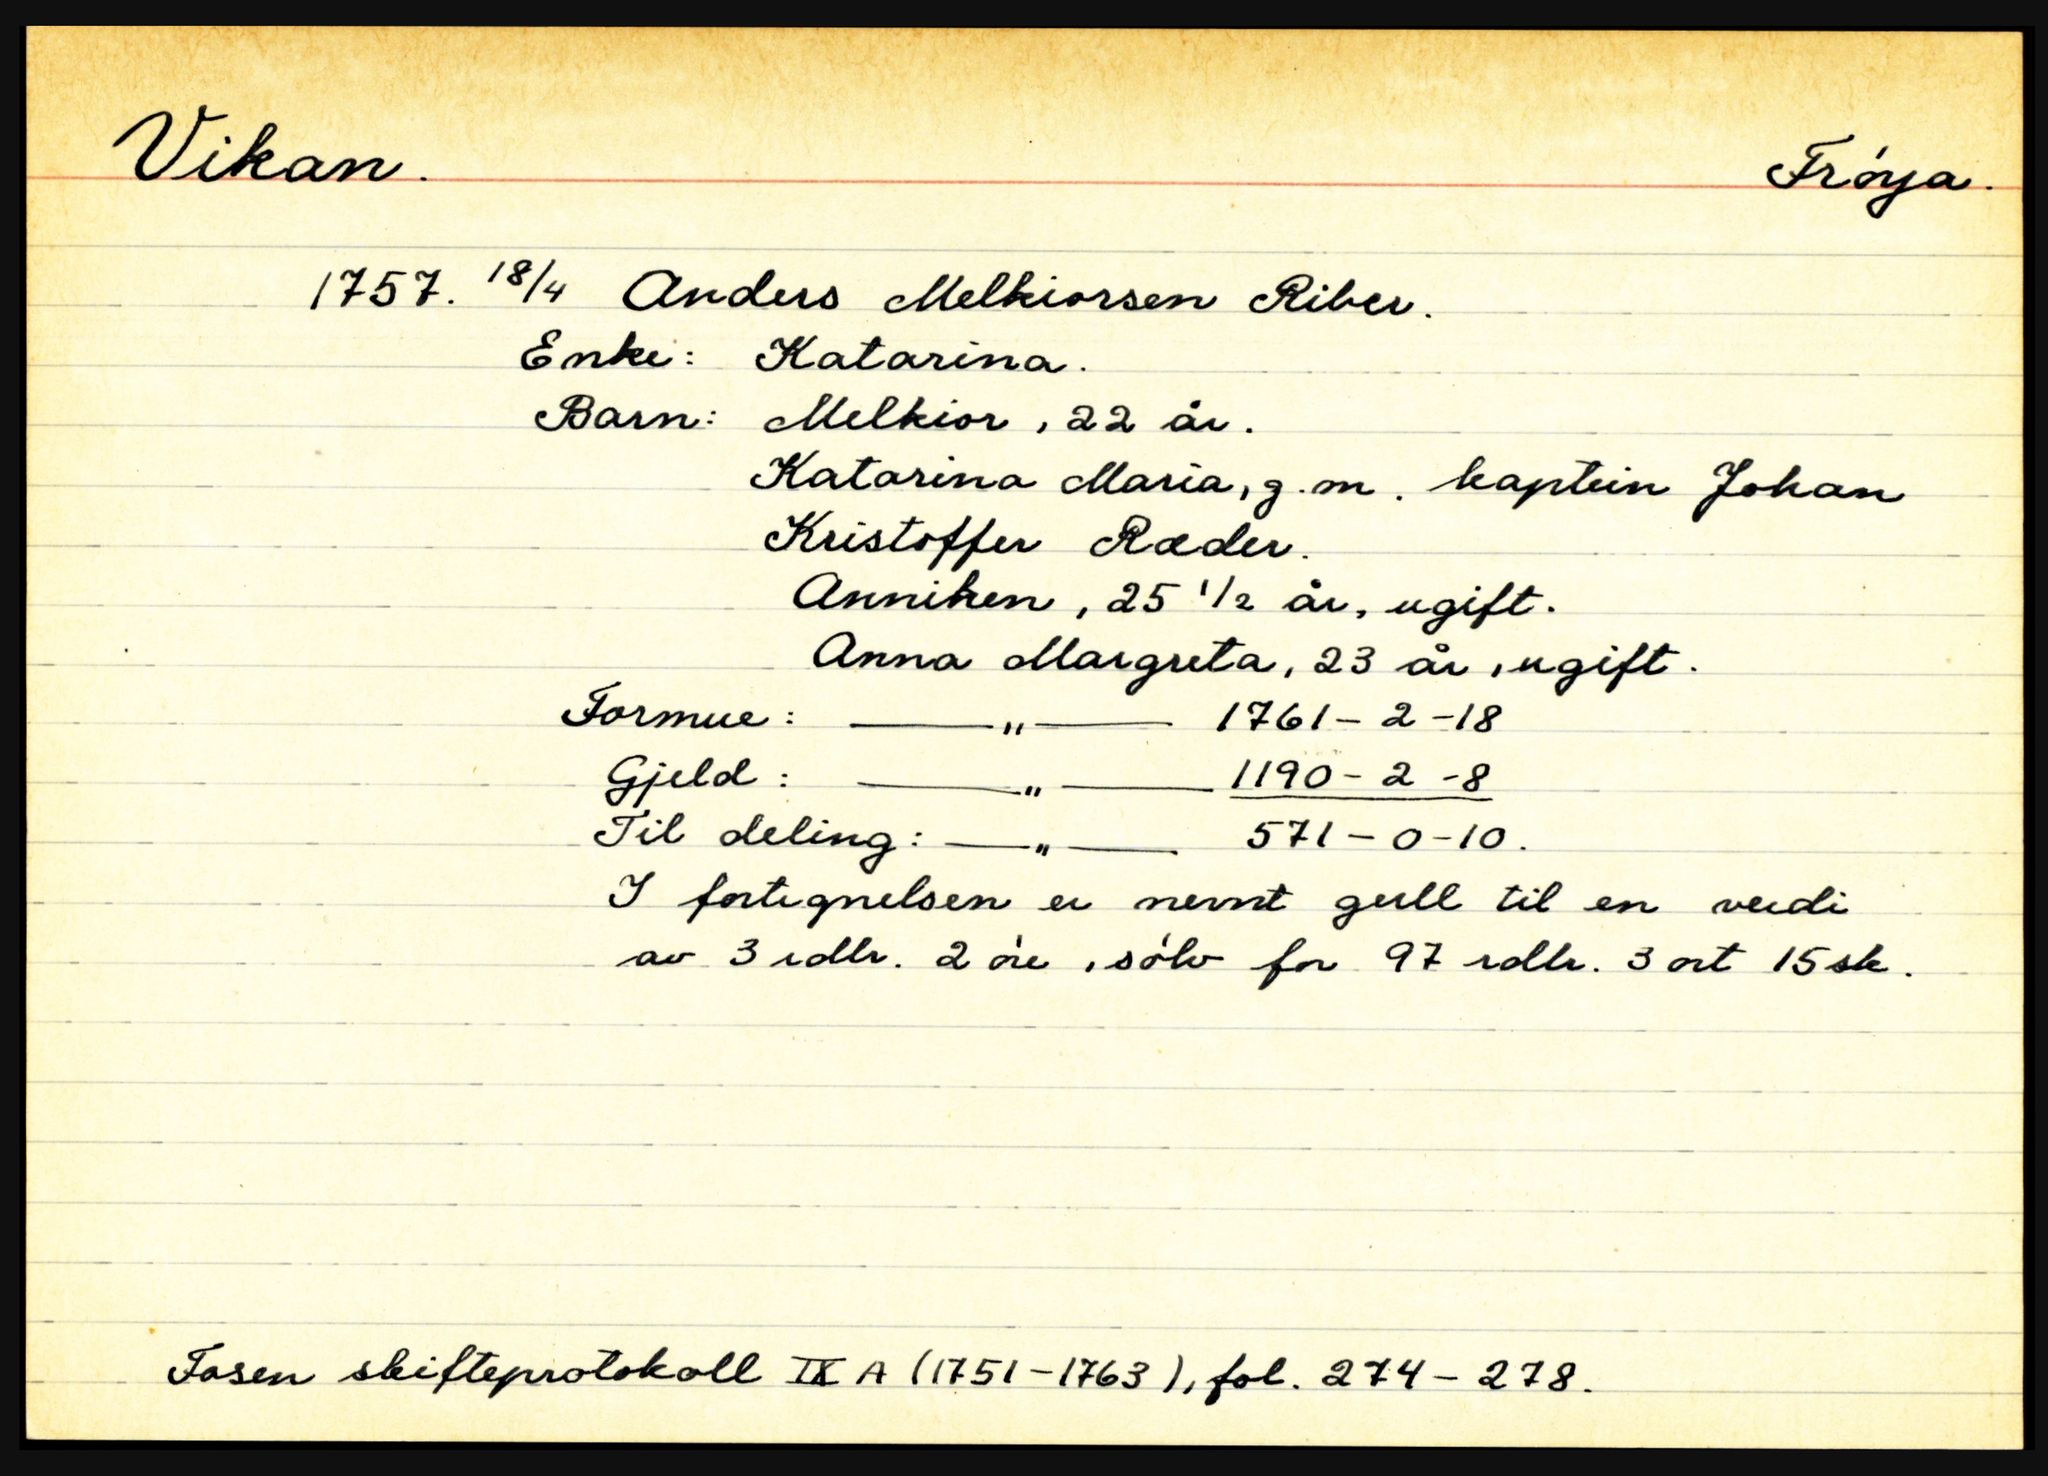 Vikan. Frøya.
1757. 18/4 Anders Melkiorsen Riber.
Enke: Katarina.
Barn: Melkior, 22 år.
Katarina Maria, g.m. kaptein Johan
Kristoffer Ræder.
Anniken, 25 1/2 år, ugift.
Anna Margreta, 23 år, ugift.
Formue: —— " —— 1761 - 2 - 18
Gjeld: —— " —— 1190 - 2 - 8
Til deling: —— " —— 571 - 0 - 10.
I fortegnelsen er nevnt gull til en verdi
av 3 rdlr. 2 øre, sølv for 97 rdlr. 3 ort 15 sk.
Fosen skifteprotokoll IX A (1751-1763), fol. 274 - 278.